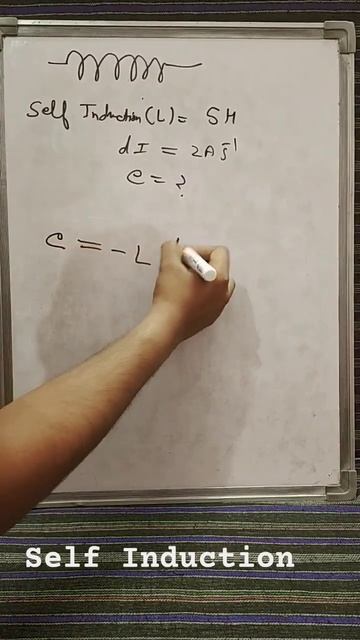 Self Induction (L) = 5H
dI = 2A s⁻¹
e = ?
e = - L
Self Induction